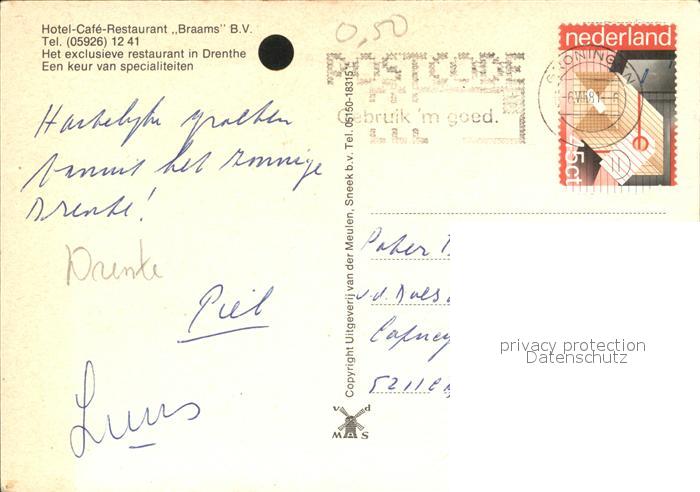 Hotel-Café-Restaurant ,,Braams" B.V.
Tel. (05926) 12 41
Het exclusieve restaurant in Drenthe
Een keur van specialiteiten
0,50
POSTCODE
gebruik 'm goed.
GRONINGEN
nederland
45ct
Hartelijke groeten
vanuit het zonnige
Drente!
Drente
Piet
Copyright Uitgeverij van der Meulen, Sneek b.v. Tel. 05150-18315
Pater
v.d. Does
5211
privacy protection
Datenschutz
v d
MAS